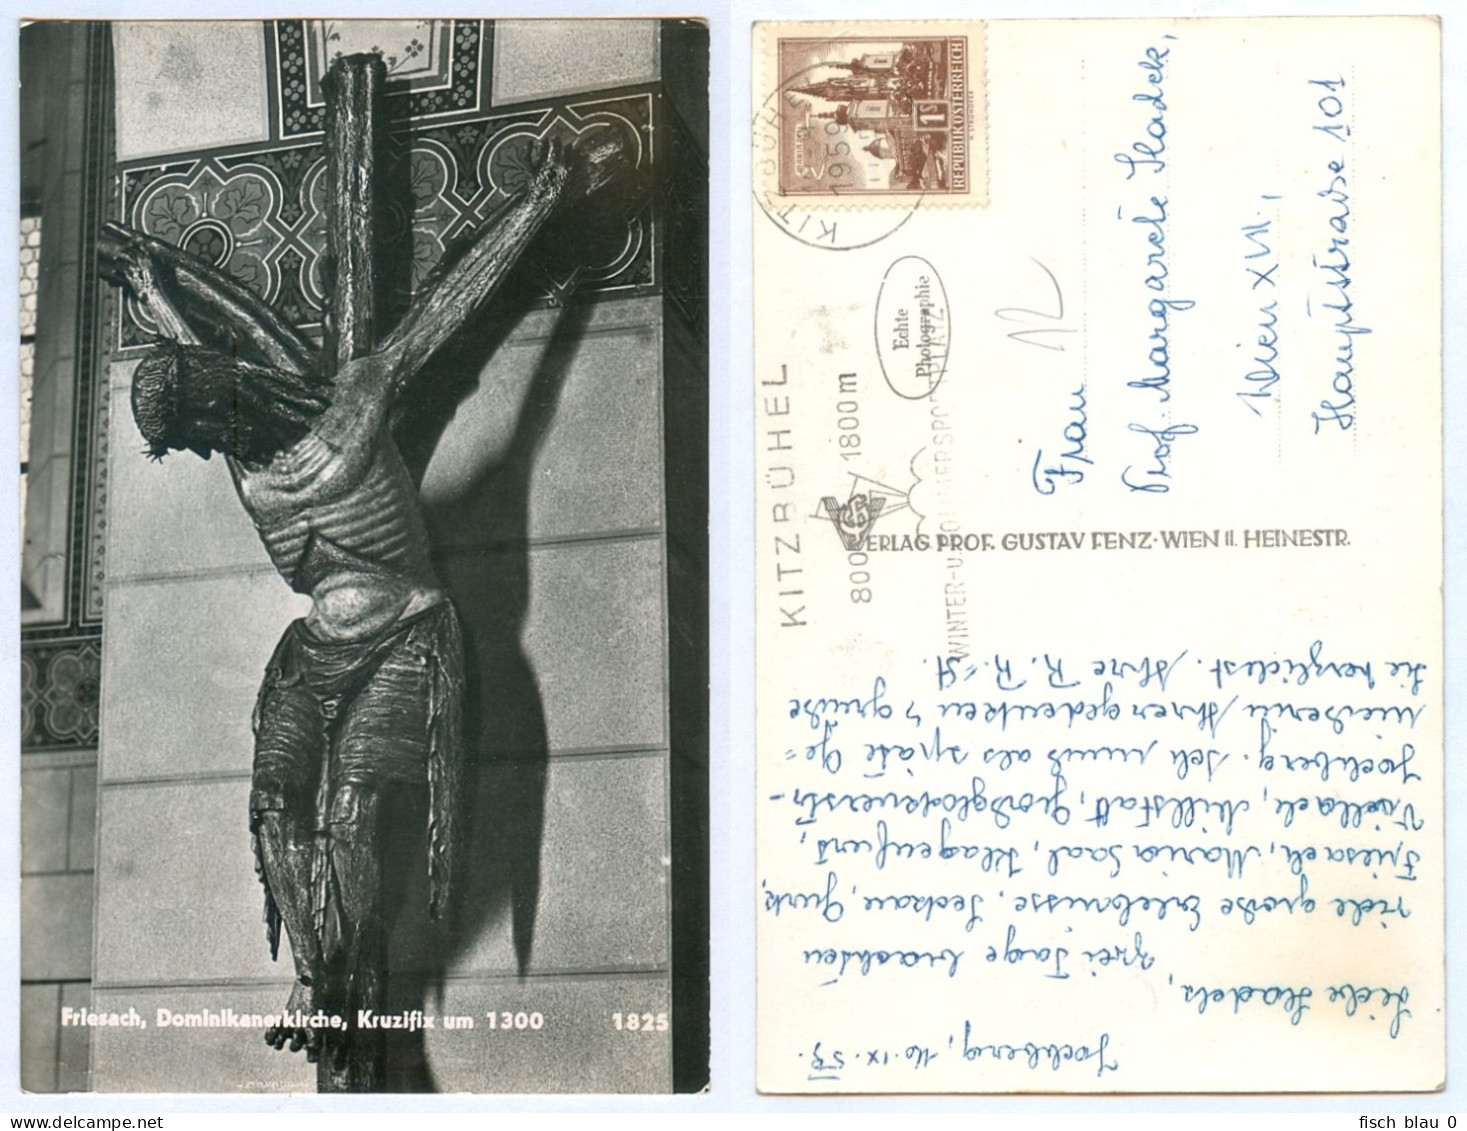 Friesach, Dominikanerkirche, Kruzifix um 1300 1825
REPUBLIK ÖSTERREICH
1 S
KITZBÜHEL
1959
KITZBÜHEL
800 1800 m
WINTER-U
Echte
Photographie
Frau
Prof. Margarete Sladek,
Wien XVII.,
Hauptstrasse 101
VERLAG PROF. GUSTAV FENZ·WIEN II. HEINESTR.
Jochberg, 10.IX.59.
Liebe Sladels,
zwei Tage brachten
viele große Erlebnisse, Seckau, Gurk,
Friesach, Maria Saal, Klagenfurt,
Villach, Millstatt, Großglocknerstr.-
Jochberg. Ich muß als späte Ge=
nießerin Ihrer gedenken & grüße
Sie herzlichst. Ihre R. R.-St.
fisch blau 0